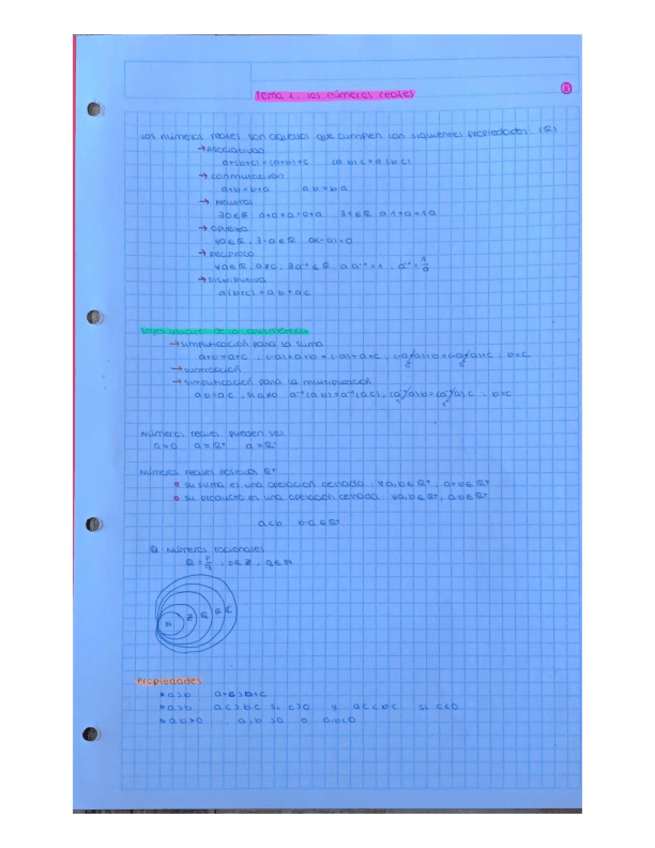 Tema 1. Los números reales
Los números reales son aquellos que cumplen las siguientes propiedades (R)
→ Asociativa
a+(b+c)=(a+b)+c (ab)c=a(bc)
→ conmutación
a+b=b+a ab=ba
→ Neutro
∃0∈R a+0=a=0+a ∃1∈R a1=a=1a
→ Opuesto
∀a∈R, ∃-a∈R a(-a)=0
→ Recíproco
∀a∈R, a≠0, ∃a⁻¹∈R aa⁻¹=1, a⁻¹=1/a
→ Distributiva
a(b+c)=ab+ac
Leyes usuales de la aritmética
→ simplificación para la suma
a+b=a+c, (-a)+a+b=(-a)+a+c, b=c
→ simplificación para la multiplicación
ab=ac, si a≠0 a⁻¹(ab)=a⁻¹(ac), b=c
Números reales pueden ser
a=0 a=R⁺ a=R⁻
Números reales positivos R⁺
su suma es una operación cerrada ∀a,b∈R⁺, a+b∈R⁺
su producto es una operación cerrada ∀a,b∈R⁺, ab∈R⁺
a<b b-a∈R⁺
Q Números racionales
Q=p/q, p∈Z, q∈N
N Z Q R C
Propiedades
a>b a+c>b+c
a>b ac>bc si c>0 y ac<bc si c<0
ab>0 a,b>0 o a,b<0